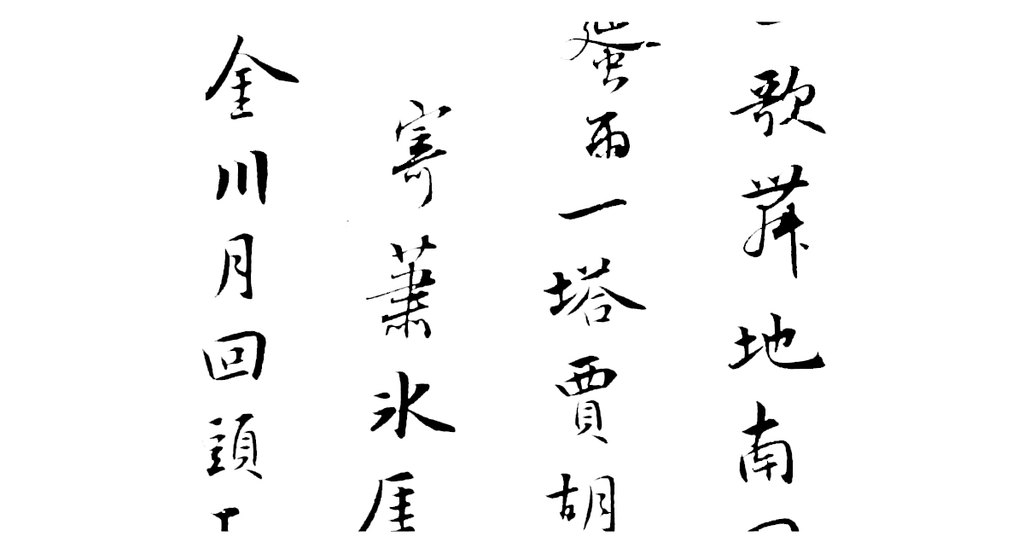 歌舞地南
蜑雨一塔賈胡
寄蕭氷厓
金川月回頭